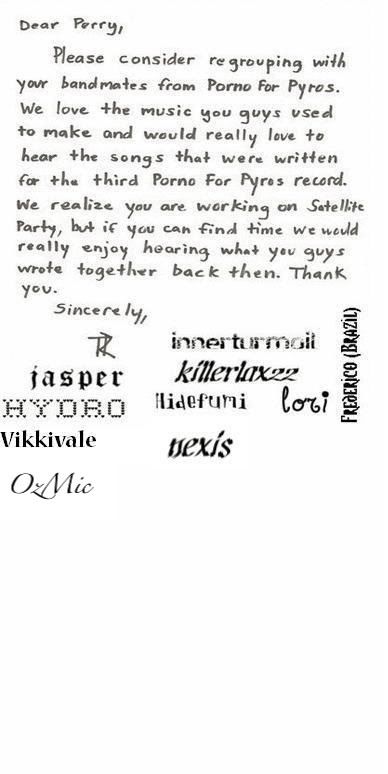 Dear Perry,
Please consider regrouping with
your bandmates from Porno For Pyros.
We love the music you guys used
to make and would really love to
hear the songs that were written
for the third Porno For Pyros record.
We realize you are working on Satellite
Party, but if you can find time we would
really enjoy hearing what you guys
wrote together back then. Thank
you.
Sincerely,
innerturmoil
jasper
killerlaxzz
HYDRO
Hidefumi
lori
Frederico (Brazil)
Vikkivale
nexis
OzMic